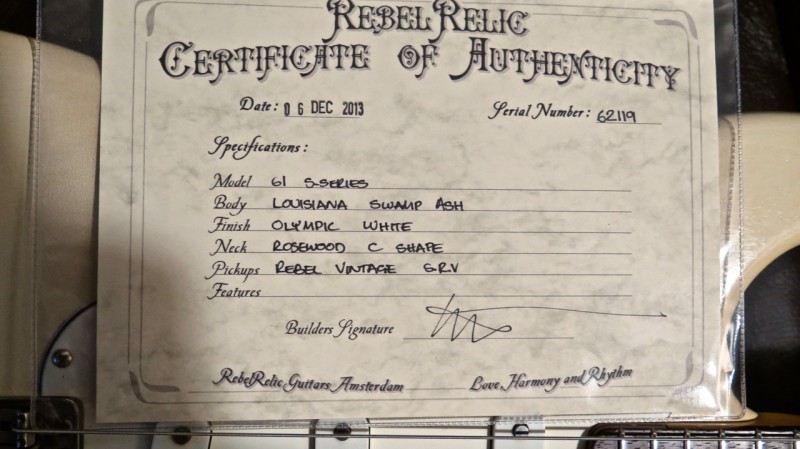 RebelRelic
Certificate of Authenticity
Date: 06 DEC 2013 Serial Number: 62119
Specifications:
Model 61 S-SERIES
Body LOUISIANA SWAMP ASH
Finish OLYMPIC WHITE
Neck ROSEWOOD C SHAPE
Pickups REBEL VINTAGE S.R.V
Features
Builders Signature
RebelRelic Guitars Amsterdam Love, Harmony and Rhythm